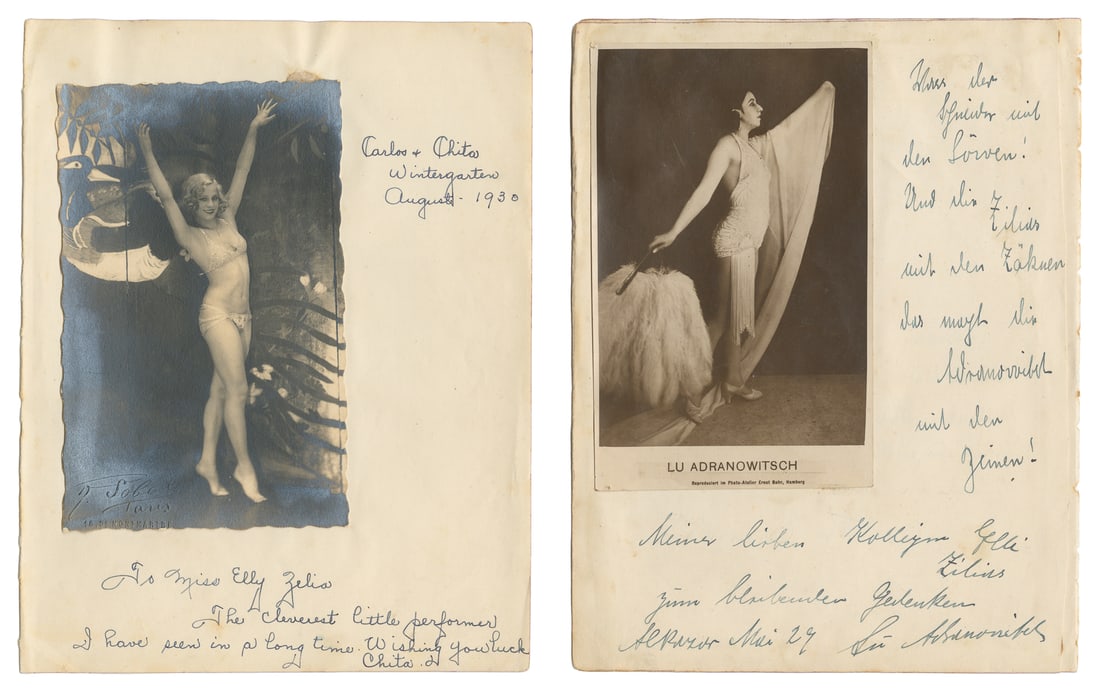 Carlos + Chita
Wintergarten
August - 1930
Paris
To Miss Elly Zelia
The cleverest little performer
I have seen in a long time. Wishing you luck
Chita.
LU ADRANOWITSCH
Reproduziert im Photo-Atelier Ernst Bahn, Hamburg
der
Schneider mit
den Löwen!
Und die
Zilias
mit den Zähnen
das macht die
Adranowitsch
mit den
Meiner lieben Kollegin Elli
Zilias
zum bleibenden Gedenken
Alkazar Mai 29 Lu Adranowitsch